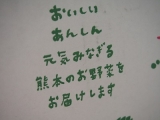 おいしい
あんしん
元気みなぎる
熊本のお野菜を
お届けします